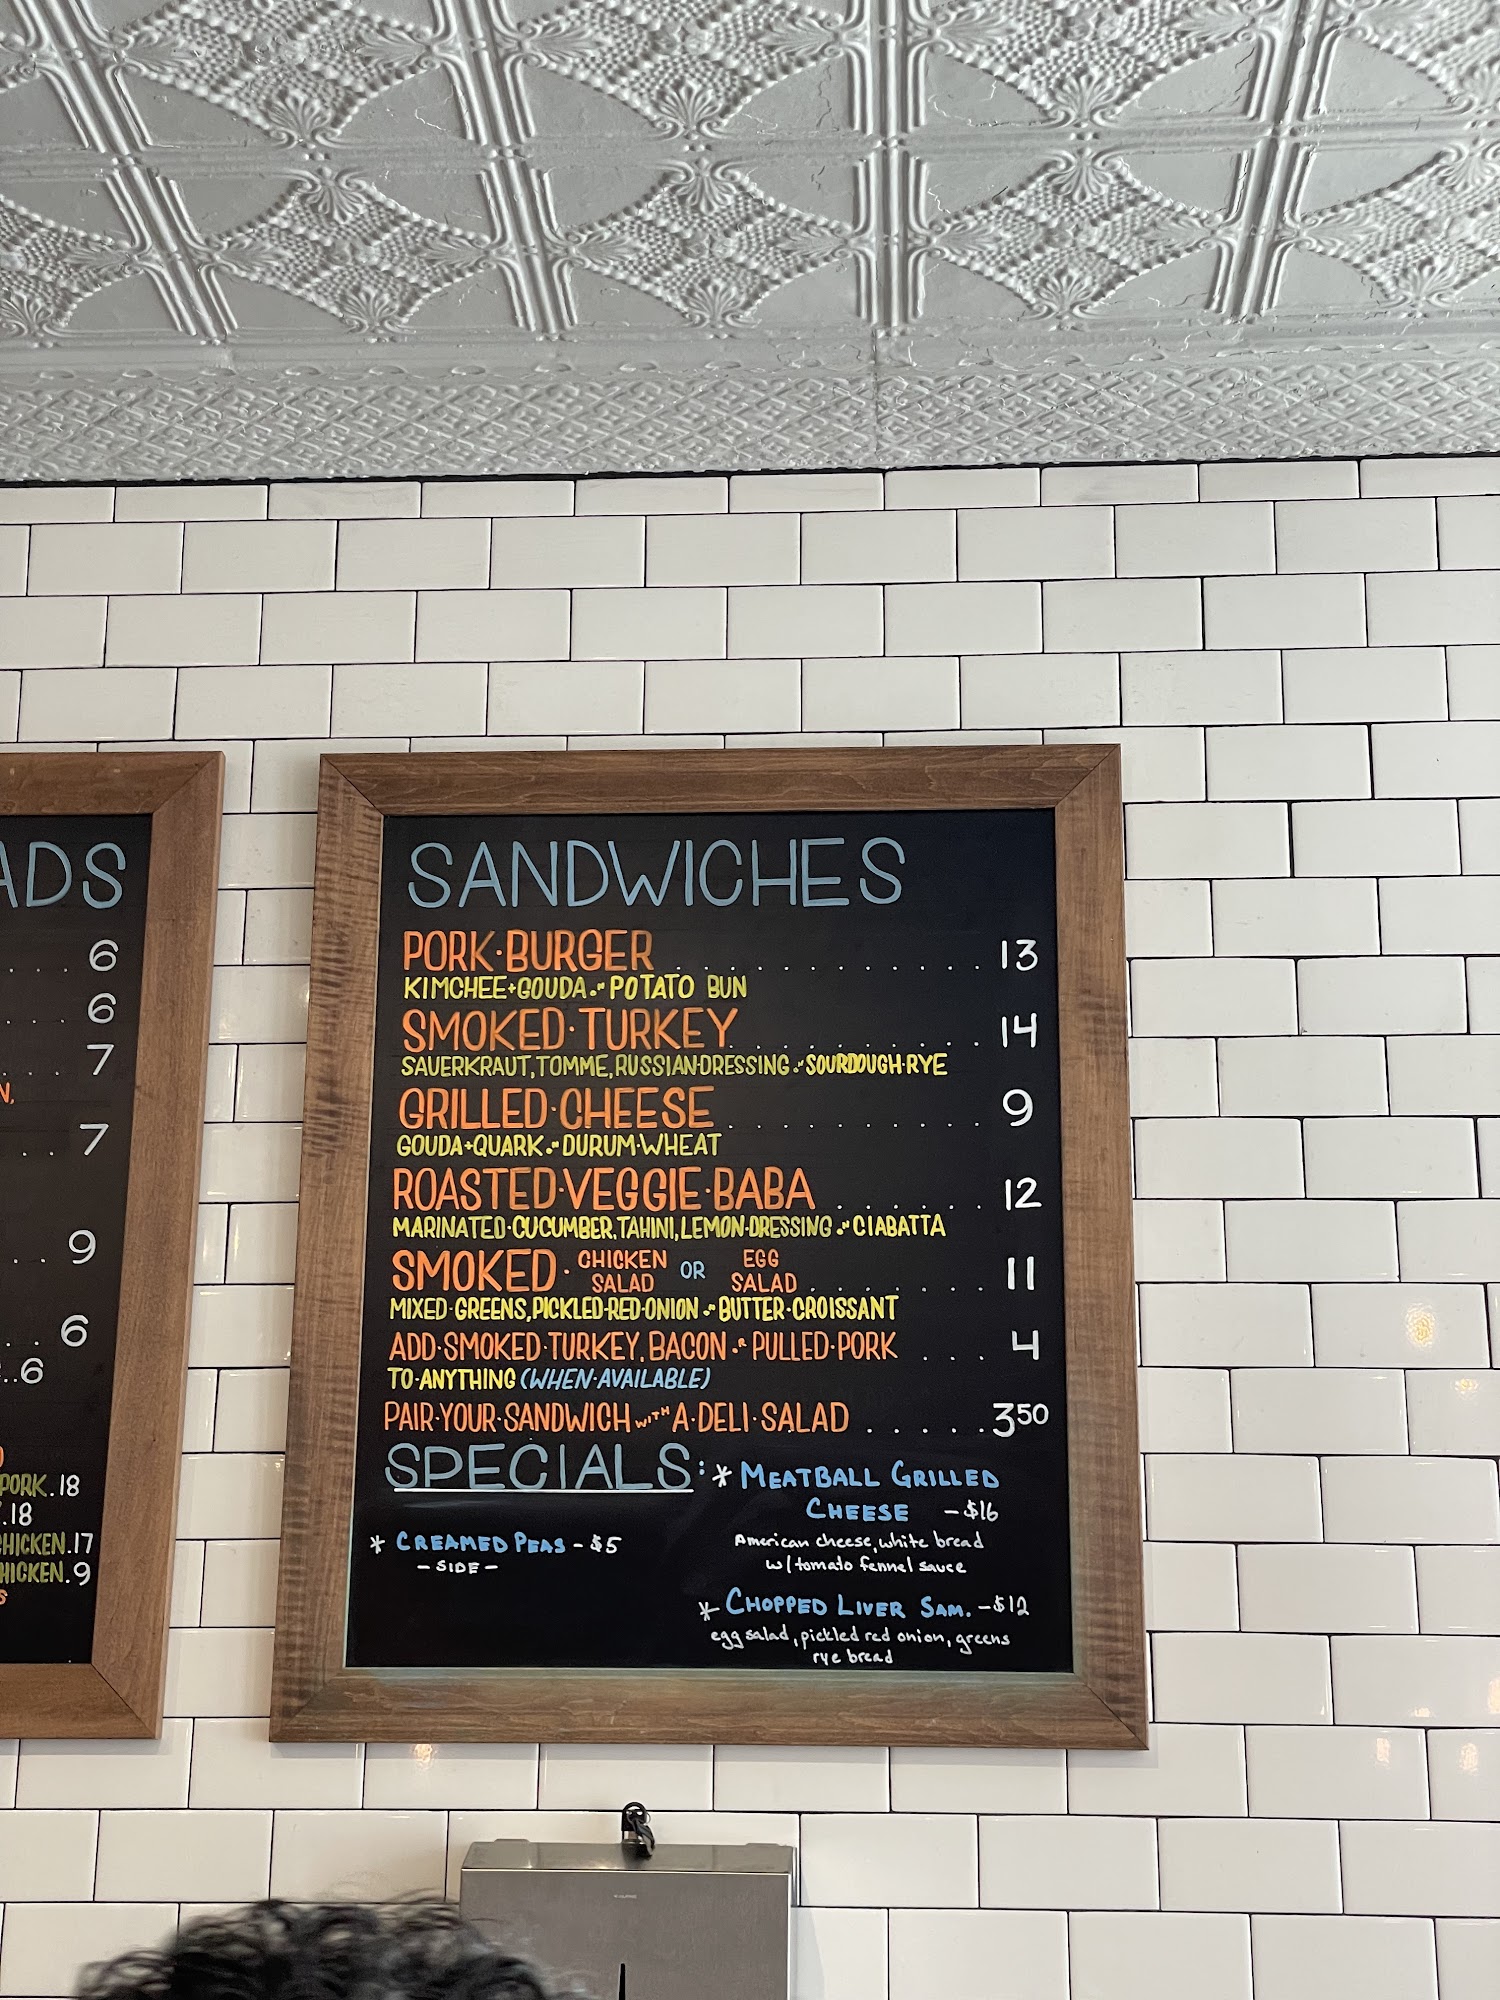 ADS
6
6
7
N,
7
9
6
6
PORK.18
.18
CHICKEN.17
HICKEN.9
S
SANDWICHES
PORK·BURGER 13
KIMCHEE+GOUDA POTATO BUN
SMOKED·TURKEY 14
SAUERKRAUT, TOMME, RUSSIAN·DRESSING SOURDOUGH·RYE
GRILLED·CHEESE 9
GOUDA+QUARK DURUM·WHEAT
ROASTED·VEGGIE·BABA 12
MARINATED·CUCUMBER, TAHINI, LEMON·DRESSING CIABATTA
SMOKED · CHICKEN SALAD OR EGG SALAD 11
MIXED·GREENS, PICKLED·RED·ONION BUTTER·CROISSANT
ADD·SMOKED·TURKEY, BACON OR PULLED·PORK 4
TO·ANYTHING (WHEN·AVAILABLE)
PAIR·YOUR·SANDWICH WITH A·DELI·SALAD 3.50
SPECIALS:
* CREAMED PEAS - $5
- SIDE -
* MEATBALL GRILLED
CHEESE - $16
American cheese, white bread
w/ tomato fennel sauce
* CHOPPED LIVER SAM. - $12
egg salad, pickled red onion, greens
rye bread